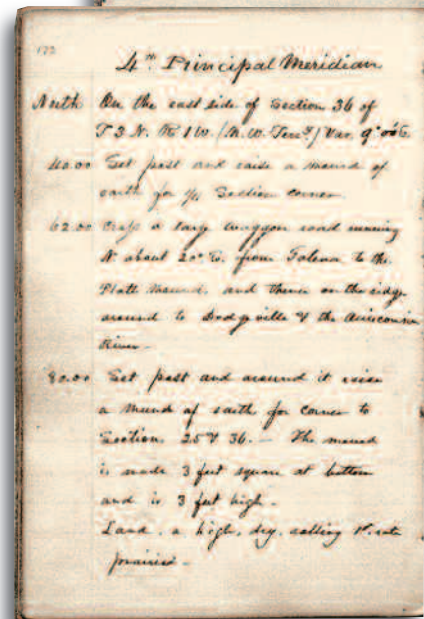 4th Principal Meridian
North On the east side of Section 36 of
T 3 N. R 1 W. (N. W. Terry) Var. 9°
40.00 Set post and raise a mound of
earth for 1/4 Section corner.
62.00 Cross a large waggon road running
N. about 20° E. from Galena to the
Platt Mound. and thence on the ridge
around to Dodgeville & the Ouisconsin
River.
80.00 Set post and around it raise
a mound of earth for corner to
Section 25 & 36. — The mound
is made 3 feet square at bottom
and is 3 feet high.
Land, a high, dry, rolling 1st rate
prairie.